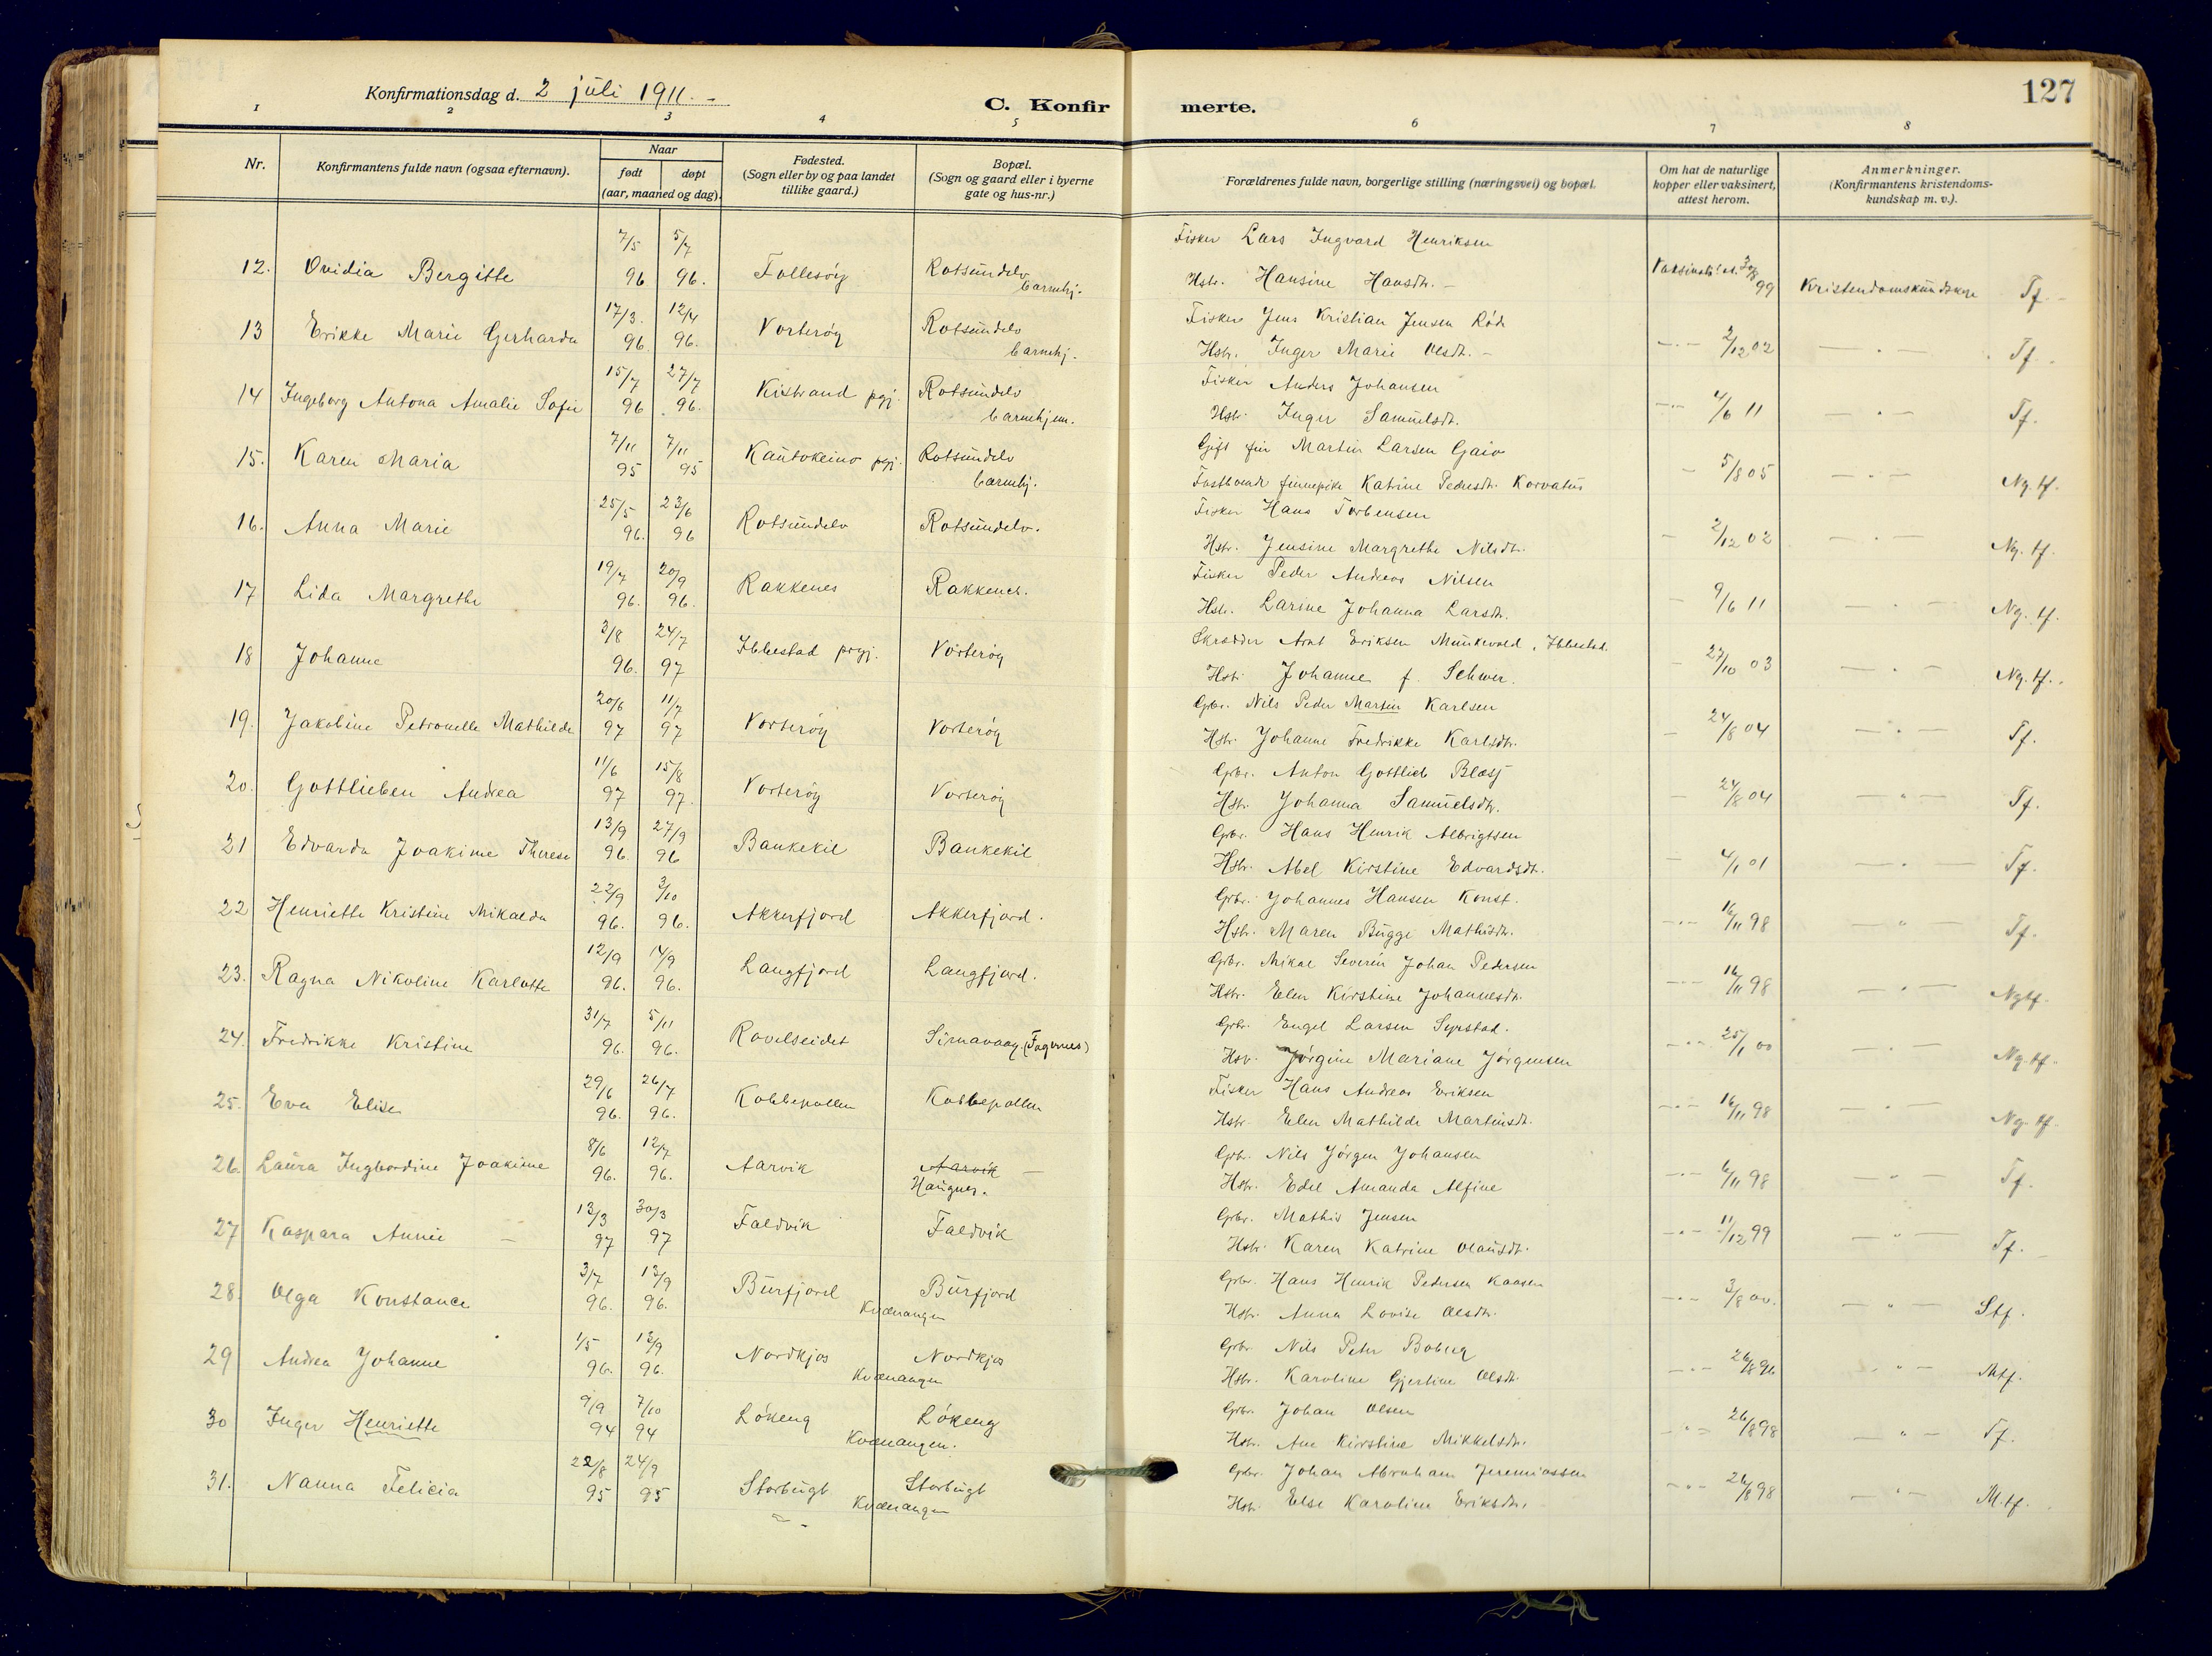 127
Konfirmationsdag d. 2 juli 1911. -
C. Konfirmerte.
1 2 3 4 5 6 7 8
Nr.
Konfirmantens fulde navn (ogsaa efternavn).
Naar
født døpt
(aar, maaned og dag).
Fødested.
(Sogn eller by og paa landet
tillike gaard.)
Bopæl.
(Sogn og gaard eller i byerne
gate og hus-nr.)
Forældrenes fulde navn, borgerlige stilling (næringsvei) og bopæl.
Om hat de naturlige
kopper eller vaksinert,
attest herom.
Anmerkninger.
(Konfirmantens kristendoms-
kundskap m. v.).
7/5 5/7 Fisker Lars Ingvard Henriksen
12. Ovidia Bergitte 96 96. Follesöy Rotsundelv barnehj. Hstr. Hansine Hansdtr. - 99 Kristendomskundskap Tf. -
17/3. 12/4 Fisker Jens Kristian Jensen Röd
13 Erikke Marie Gerharda 96. 96. Vorteröy Rotsundelv barnehj. Hstr. Inger Marie Olsdt. - 2/12 02 Tf.
15/7 27/7 Fisker Anders Johansen
14 Ingeborg Antona Amalie Sofie 96 96. Kistrand pgj. Rotsundelv barnehjem. Hstr. Inger Samuelsdt. 11 Tf.
7/11 7/11 Gift fin Martin Larsen Gaiv
15. Karen Maria 95 95 Kautokeino pgj. Rotsundelv barnehj. Fastboende finnepike Katrine Pedersdt. Korvatus 5/8 05 Ng. tf.
25/5 23/6 Fisker Hans Torbensen
16. Anna Marie 96. 96 Rotsundelv Rotsundelv. Hstr. Jensine Margrethe Nilsdt. 2/12 02 Ng. tf.
19/7 20/9 Fisker Peder Andreas Nilsen
17 Lida Margrethe 96. 96. Rakkenes Rakkenes. Hstr. Larine Johanna Larsdt. 9/6 11 Ng. tf.
3/8 24/7 Skrædder Arnt Eriksen Munkevold, Ibbestad
18 Johanne 96. 97 Ibbestad prgj. Vorteröy Hstr. Johanne f. Schwer. 27/10 03 Ng. tf.
20/6 11/7 Grbr. Nils Peder Martin Karlsen
19. Jakobine Petronelle Mathilde 97 97 Vorteröy Vorteröy Hstr. Johanne Fredrikke Karlsdtr. 24/8 04 Tf.
11/6 15/8 Grbr. Anton Gottlieb Blæsj
20. Gottlieben Andrea 97 97. Vorteröy Vorteröy Hstr. Johanna Samuelsdtr. 24/8 04 Tf.
13/9 27/9 Grbr. Hans Henrik Albrigtsen
21 Edvarda Joakime Therese 96. 96 Bankekil Bankekil Hstr. Abel Kirstine Edvardsdt. 4/1 01 Tf.
22/9 3/10 Grbr. Johannes Hansen Konst.
22 Henriette Kristine Mikalda 96. 96. Akkerfjord Akkerfjord. Hstr. Maren Bugge Mathisdtr. 16/11 98 Tf.
12/9 14/9 Grbr. Mikal Severin Johan Pedersen
23. Ragna Nikoline Karlotte 96. 96. Langfjord Langfjord. Hstr. Elen Kirstine Johannesdtr. 16/11 98 Ngtf.
31/7 5/11 Grbr. Engel Larsen Syrstad.
24. Fredrikke Kristine 96. 96. Ravelseidet Simavaag (Fagernes) Hstr. Jörgine Mariane Jörgensen 25/1 00 Ng. tf.
29/6 26/7 Fisker Hans Andreas Eriksen
25. Eva Elise 96. 96. Kobbepollen Kobbepollen Hstr. Elen Mathilde Martinsdt. 16/11 98 Ng. tf.
8/6 12/7 Grbr. Nils Jörgen Johansen
26. Laura Ingbordine Joakime 96. 96. Aarvik Aarvik Haugnes. Hstr. Edel Amanda Alfine 98 Tf.
13/3 30/3 Grbr. Mathis Jensen
27 Kaspara Annie 97 97 Faldvik Faldvik Hstr. Karen Katrine Olausdt. 11/12 99 Tf.
3/7 13/9 Grbr. Hans Henrik Pedersen Kaasen
28. Olga Konstance 96. 96. Burfjord Burfjord Kvænangen Hstr. Anna Lovise Olsdtr. 3/8 00. Stf.
1/5 13/9 Grbr. Nils Peter Boberg
29 Andrea Johanne 96. 96. Nordkjos Nordkjos Kvænangen Hstr. Karoline Gjertine Olsdt. 26/8 96 Mtf.
9/9 7/10 Grbr. Johan Olsen
30 Inger Henriette 94 94 Lökeng Lökeng Kvænangen. Hstr. Ane Kirstine Mikkelsdtr. 26/8 98 Tf.
22/8 24/9 Grbr. Johan Abraham Jeremiassen
31. Nanna Felicia 95 95 Storbugt Storbugt Kvænangen Hstr. Else Karoline Eriksdtr. 26/8 98 M.tf.